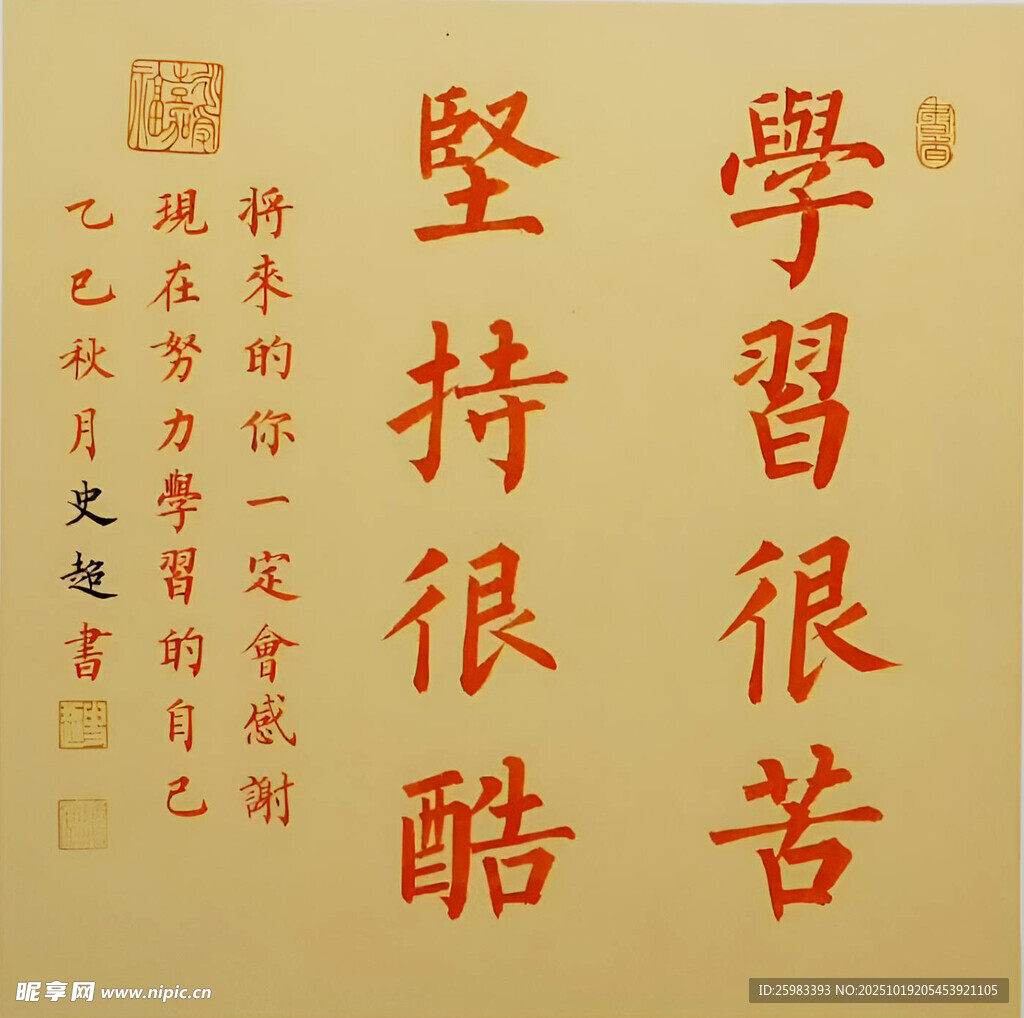 學習很苦
堅持很酷
将來的你一定會感謝
現在努力學習的自己
乙巳秋月史超書
昵享网 www.nipic.cn
ID:25983393 NO:20251019205453921105